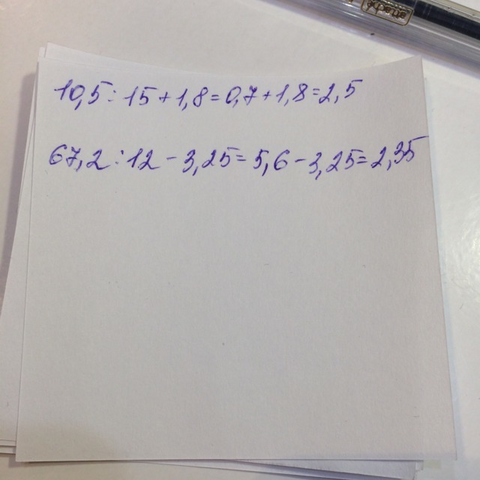 10,5:15+1,8=0,7+1,8=2,5
67,2:12-3,25=5,6-3,25=2,35